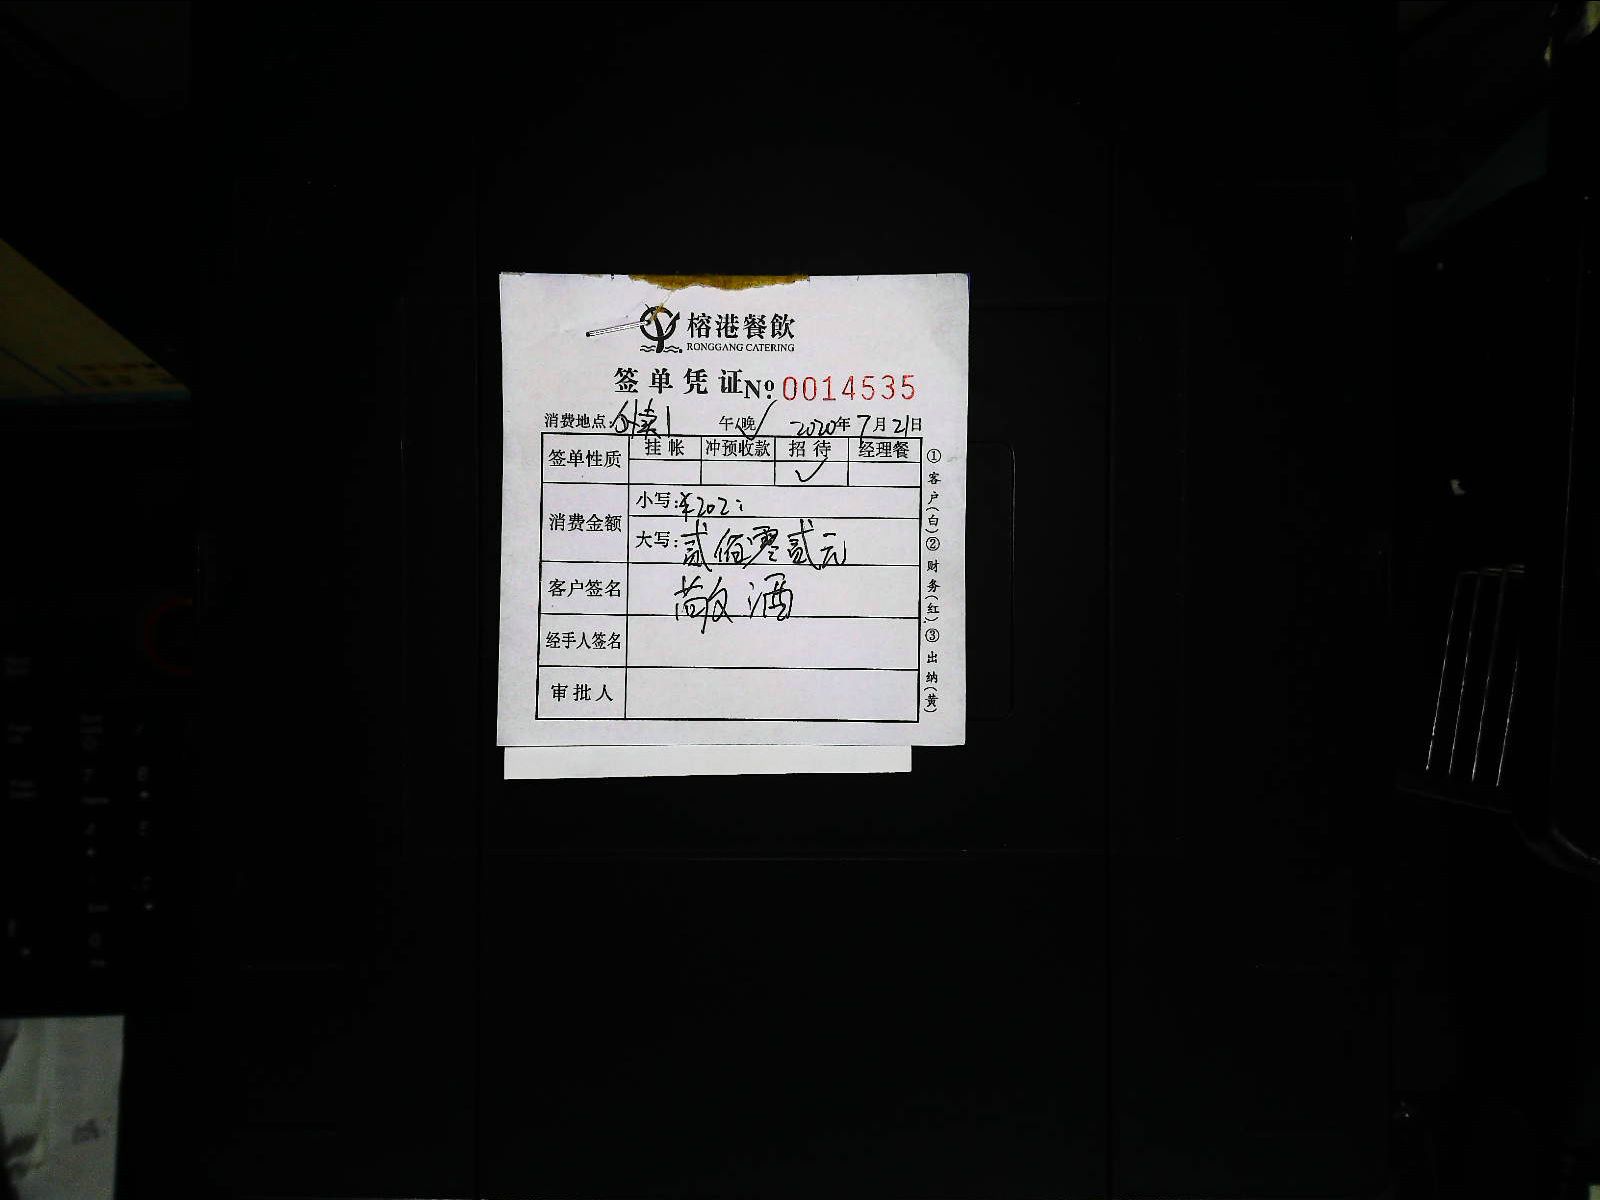 榕港餐飲
RONGGANG CATERING
签单凭证 № 0014535
消费地点:外卖1 午/晚✓ 2020年7月21日
签单性质 挂帐 冲预收款 招待 经理餐
✓
消费金额 小写:¥202:
大写:贰佰零贰元
客户签名 敬酒
经手人签名
审批人
①客户(白)②财务(红)③出纳(黄)